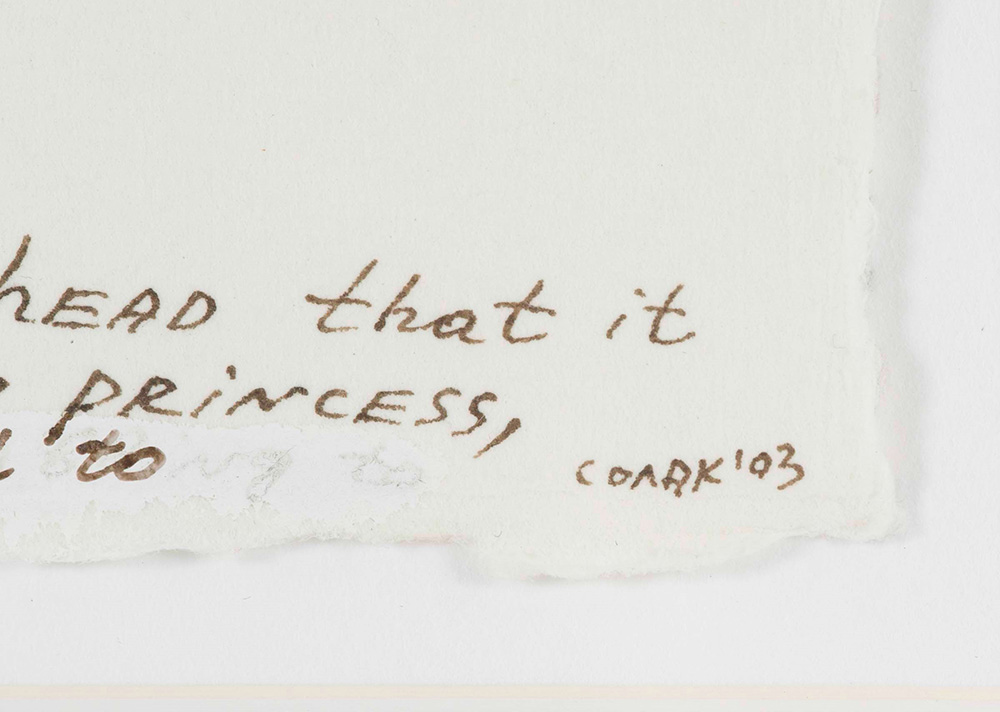 head that it
princess,
to
COARK '03